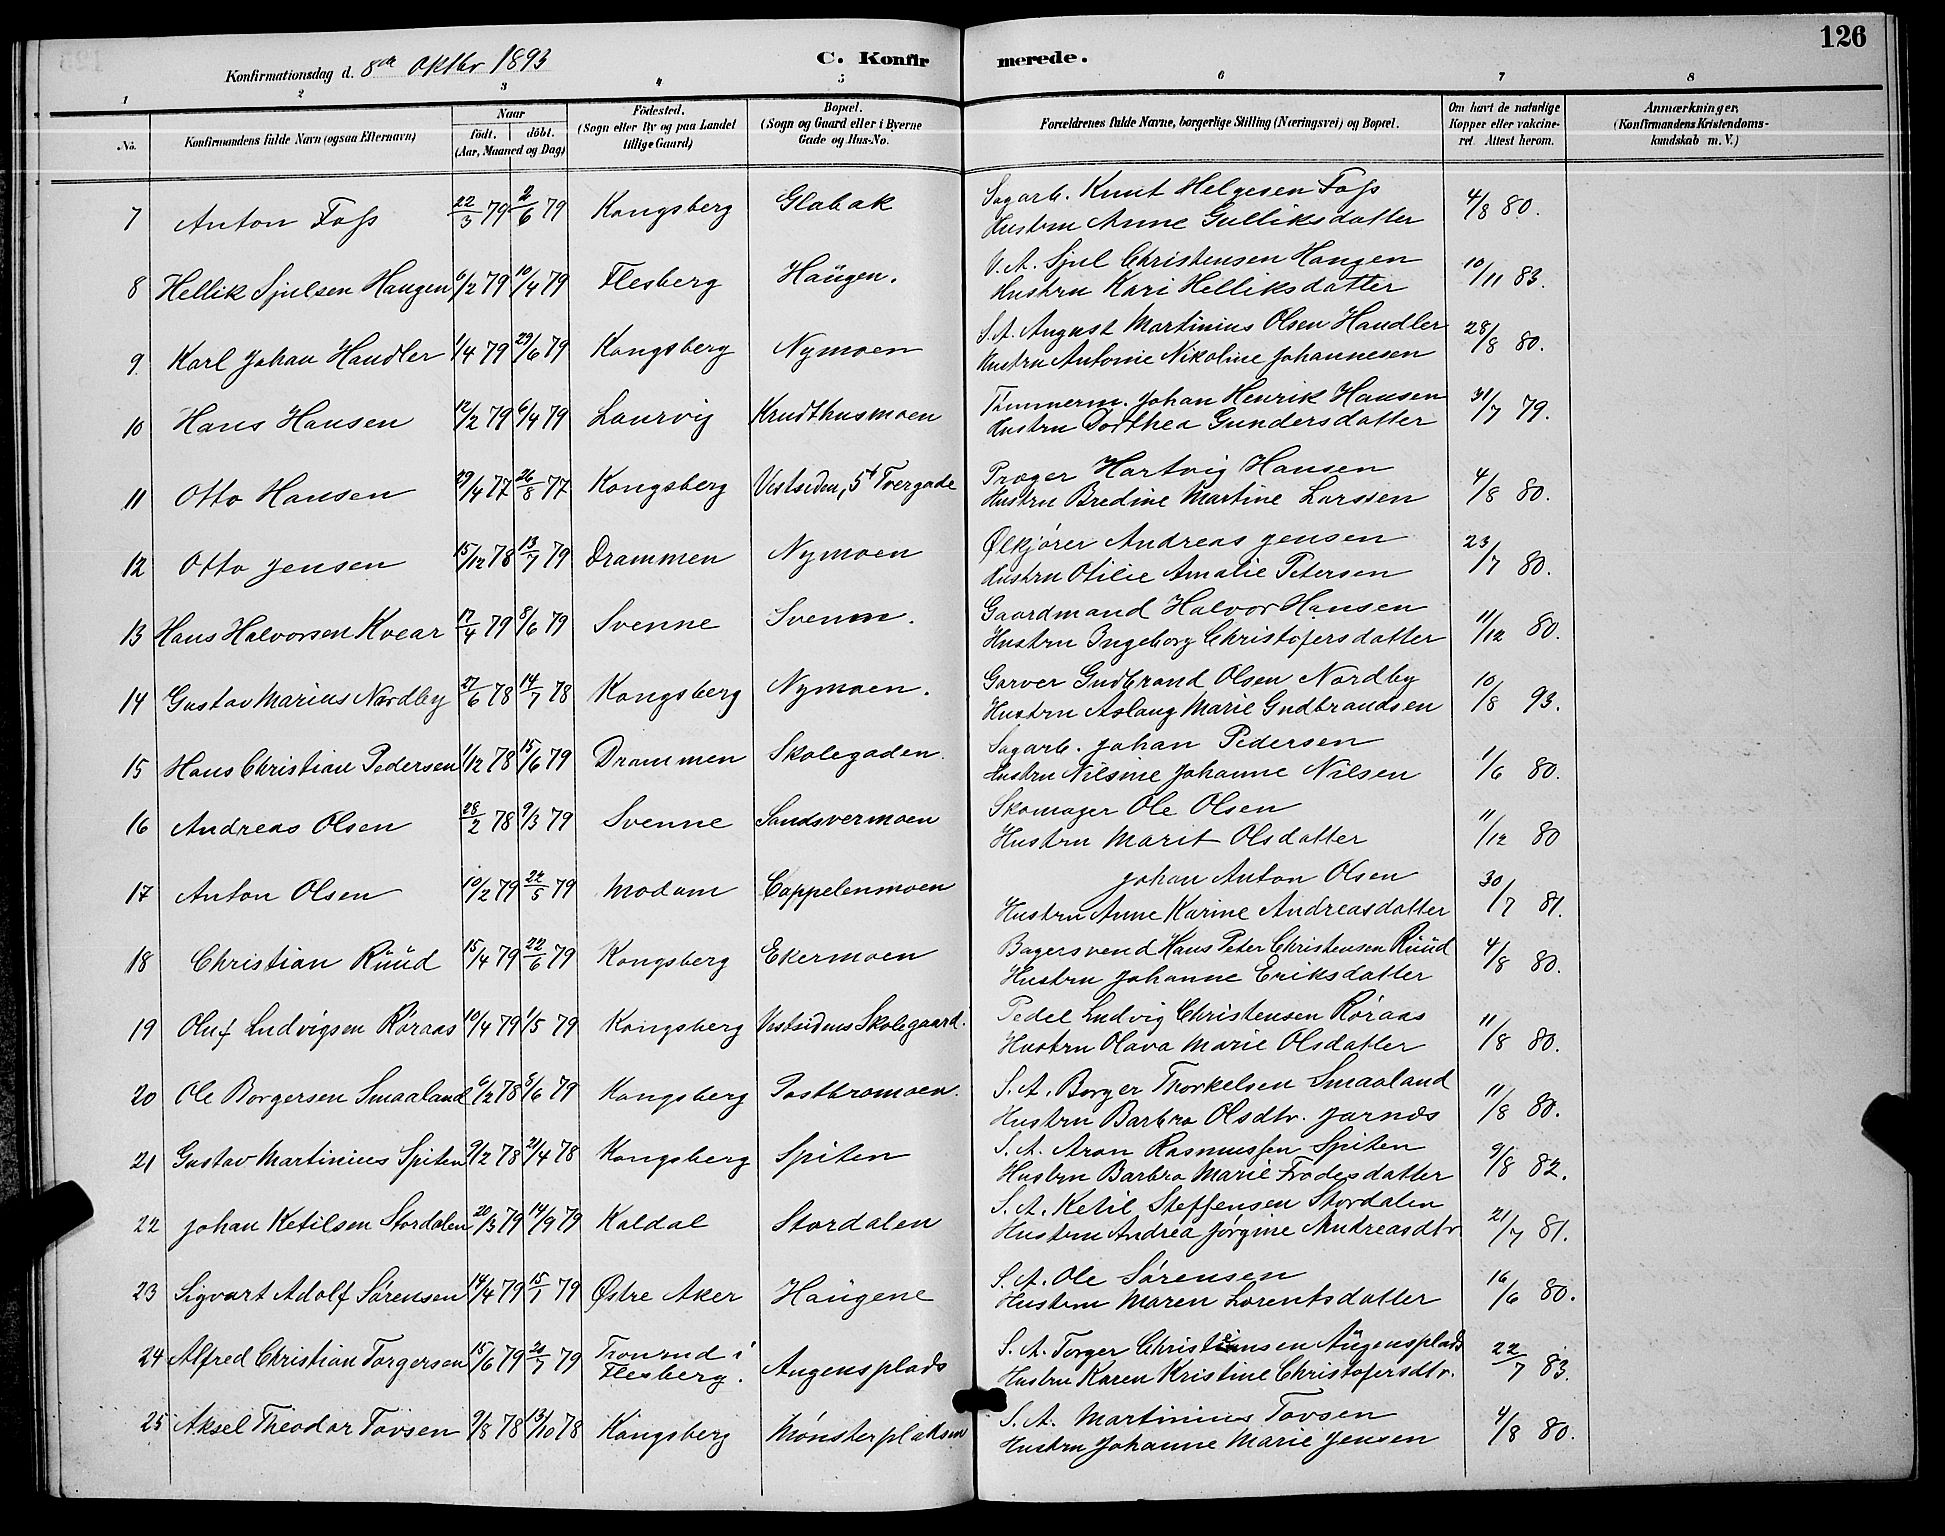 126
Konfirmationsdag d. 8de Oktbr 1893
C. Konfirmerede.
1 2 3 4 5 6 7 8
No.
Konfirmandens fulde Navn (ogsaa Efternavn)
Naar
födt. döbt.
(Aar, Maaned og Dag)
Födested.
(Sogn eller By og paa Landet
tillige Gaard)
Bopæl.
(Sogn og Gaard eller i Byerne
Gade og Hus-No.
Forældrenes fulde Navne, borgerlige Stilling (Næringsvei) og Bopæl.
Om havt de naturlige
Kopper eller vakcine-
ret. Attest herom.
Anmærkninger,
(Konfirmandens Kristendoms-
kundskab m. V.)
7 Anton Foss 22/3 79 2/6 79 Kongsberg Glabak Sagarb. Knut Helgesen Foss 4/8 80.
Hustru Anne Gulliksdatter
8 Hellik Sjulsen Haugen 6/2 79 10/4 79 Flesberg Haügen. V. A. Sjul Christensen Haugen 10/11 83.
Hustru Kari Helliksdatter
9. Karl Johan Handler 1/4 79 29/6 79 Kongsberg Nymoen S. A. August Martinius Olsen Handler 28/8 80.
Hustru Antonie Nikoline Johannesen
10 Hans Hansen 12/2 79 6/4 79 Laurvig Krudthusmoen Tømmerm. Johan Henrik Hansen 31/7 79.
Hustru Dorthea Gundersdatter
11 Otto Hansen 29/4 77 26/8 77 Kongsberg Vestsiden, 5t Tvergade Præger Hartvig Hansen 4/8 80.
Hustru Bredine Martine Larssen
12 Otto Jensen 15/12 78 13/7 79 Drammen Nymoen Ølkjører Andreas Jensen 23/7 80.
Hustru Otilie Amalie Petersen
13 Hans Halvorsen Kvear 17/4 79 8/6 79 Svenne Svenne. Gaardmand Halvor Hansen 11/12 80.
Hustru Ingeborg Christofersdatter
14 Gustav Marius Nordby 27/6 78 14/7 78 Kongsberg Nymoen. Garver Gudbrand Olsen Nordby 10/8 93.
Hustru Aslaug Marie Gudbrandsen
15 Hans Christian Pedersen 1/12 78 15/6 79 Drammen Skolegaden. Sagarb. Johan Pedersen 1/6 80.
Hustru Nilsine Johanne Nilsen
16 Andreas Olsen 28/2 78 9/3 79 Svenne Sandsvermoen Skomager Ole Olsen 11/12 80
Hustru Marit Olsdatter
17 Anton Olsen 10/2 79 22/5 79 Modum Cappelenmoen Johan Anton Olsen 30/7 81.
Hustru Anne Karine Andreasdatter
18 Christian Rüüd 15/4 79 22/6 79 Kongsberg Ekermoen Bagersvend Hans Peter Christensen Rüüd 4/8 80.
Hustru Johanne Eriksdatter
19 Oluf Ludvigsen Røraas 10/4 79 1/5 79 Kongsberg Vestsidens Skolegaard. Pedel Ludvig Christensen Røraas 11/8 80.
Hustru Olava Marie Olsdatter
20 Ole Borgersen Smaaland 6/2 78 8/6 79 Kongsberg Postbromoen. S. A. Borger Thorkelsen Smaaland 11/8 80.
Hustru Barbro Olsdtr. Jarnæs
21 Gustav Martinius Spiten 9/2 78 21/4 78 Kongsberg Spiten S. A. Aron Rasmussen Spiten 9/8 82.
Hustru Barbro Marie Frodesdatter
22 Johan Ketilsen Stordalen 20/3 79 14/9 79 Koldal Stordalen S. A. Ketil Steffensen Stordalen 21/7 81.
Hustru Andrea Jørgine Andreasdtr
23 Sigvart Adolf Sørensen 14/4 79 15/1 79 Østre Aker Haügene S. A. Ole Sørensen 16/6 80.
Hustru Maren Lorentsdatter
24 Alfred Christian Torgersen 15/6 79 20/7 79 Tronrud i Augensplads S. A. Torger Christiansen Aügensplads 22/7 83.
Flesberg. Hustru Karen Kristine Christofersdtr.
25 Aksel Theodor Tovsen 9/8 78 13/10 78 Kongsberg Mønsterpladsen S. A. Martinius Tovsen 4/8 80.
Hustru Johanne Marie Jensen